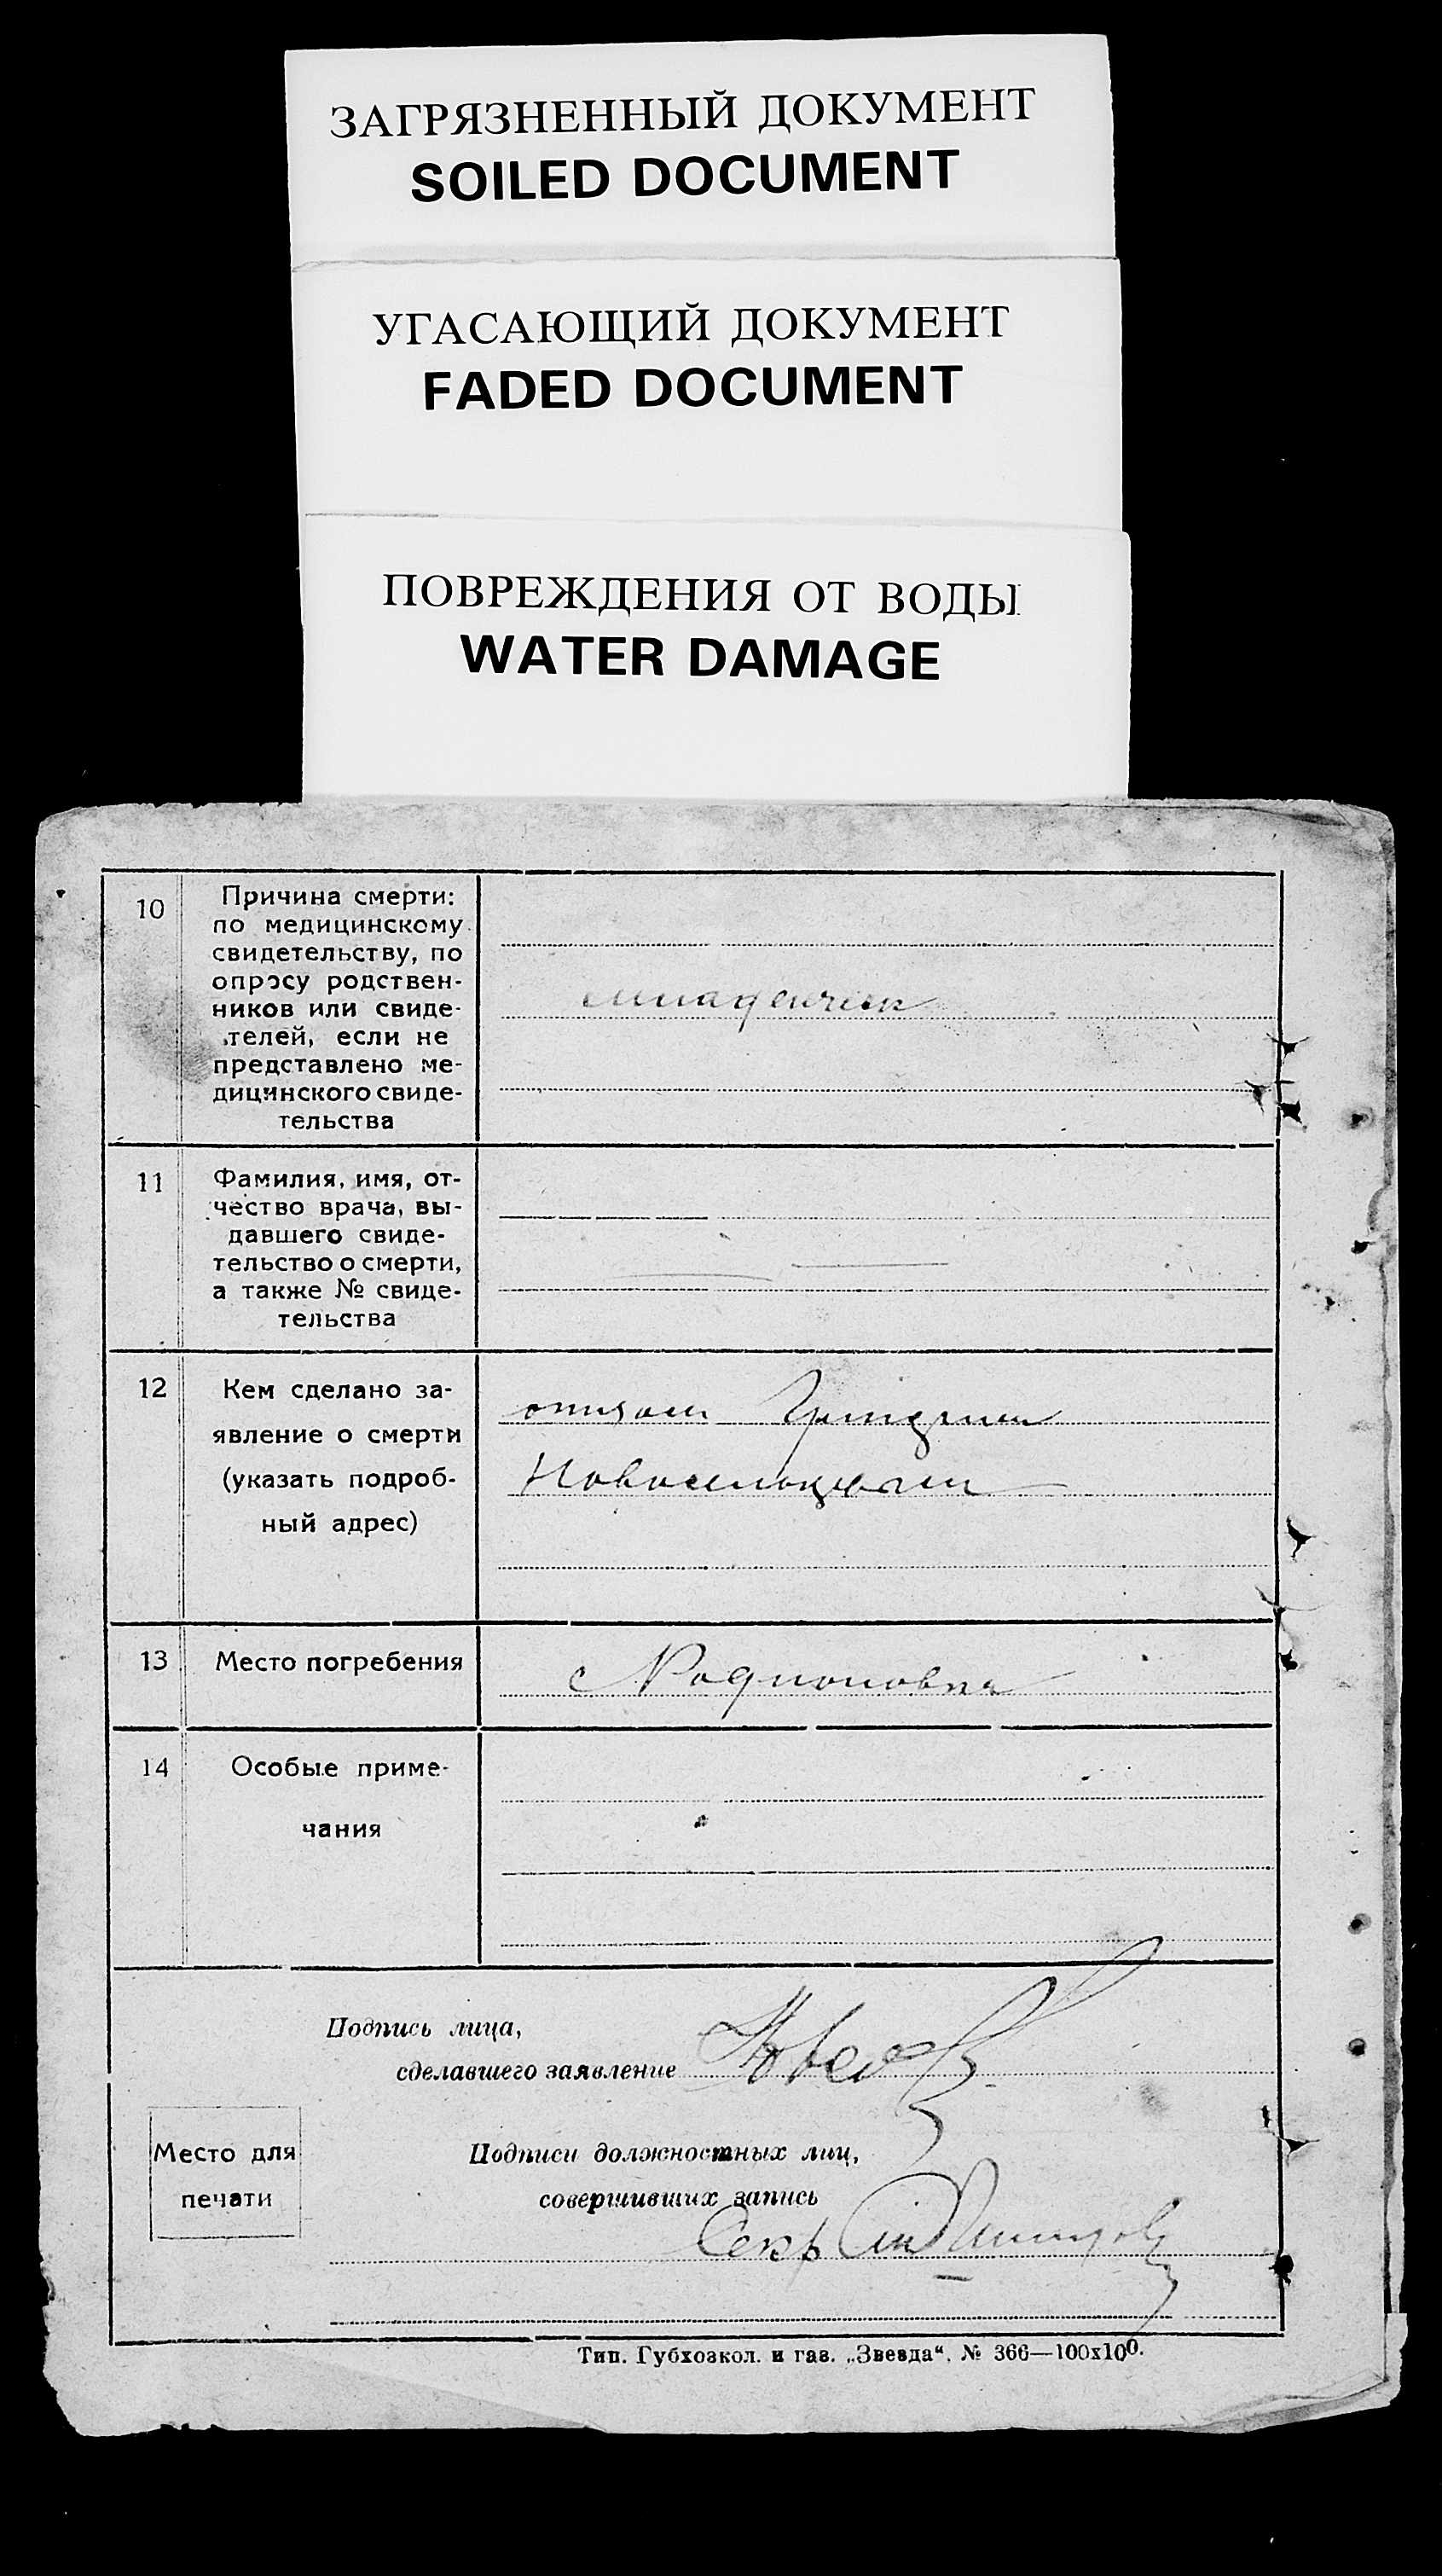 ЗАГРЯЗНЕННЫЙ ДОКУМЕНТ
SOILED DOCUMENT
УГАСАЮЩИЙ ДОКУМЕНТ
FADED DOCUMENT
ПОВРЕЖДЕНИЯ ОТ ВОДЫ
WATER DAMAGE
10
Причина смерти:
по медицинскому
свидетельству, по
опросу родствен-
ников или свиде-
телей, если не
представлено ме-
дицинского свиде-
тельства
11
Фамилия, имя, от-
чество врача, вы-
давшего свиде-
тельство о смерти,
а также № свиде-
тельства
12
Кем сделано за-
явление о смерти
(указать подроб-
ный адрес)
отцом
Новосельцевым
13
Место погребения
с Родионовка
14
Особые приме-
чания
Подпись лица,
сделавшего заявление
Место для
печати
Подписи должностных лиц,
совершивших запись
Секр
Тип. Губхозкол. и газ. „Звезда“. № 366—100х100.